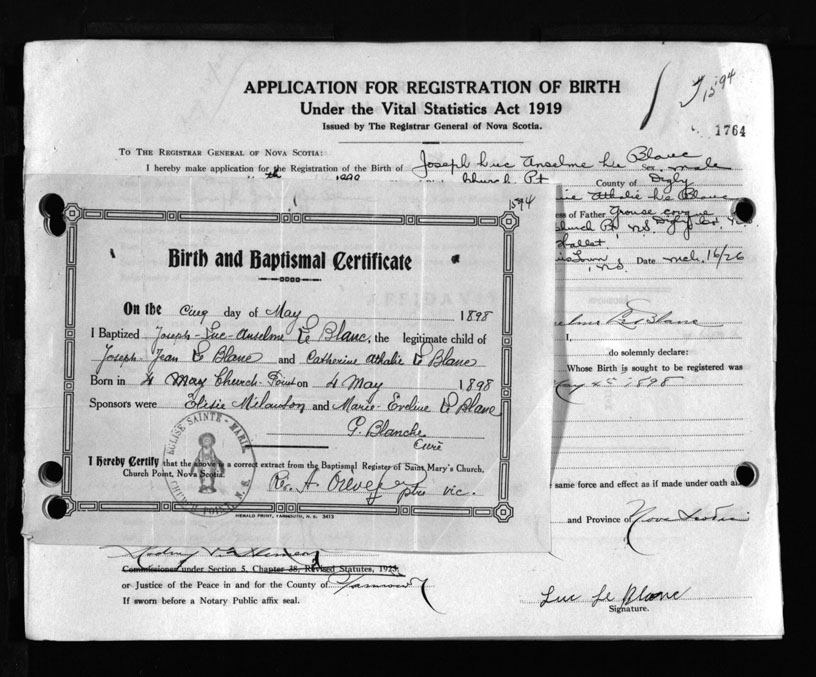 APPLICATION FOR REGISTRATION OF BIRTH
Under the Vital Statistics Act 1919
Issued by The Registrar General of Nova Scotia.
1594
1764
To The Registrar General of Nova Scotia:
I hereby make application for the Registration of the Birth of Joseph Luc Anselme Le Blanc Sex male
Church Pt County of Digby
Athalie Le Blanc
ess of Father
Church Pt N.S. Digby
N.S. Date Mch. 16/26
Le Blanc
I,
do solemnly declare:
Whose Birth is sought to be registered was
1898
same force and effect as if made under oath an
and Province of Nova Scotia
1594
Birth and Baptismal Certificate
On the Cinq day of May 1898
I Baptized Joseph-Luc-Anselme Le Blanc, the legitimate child of
Joseph-Jean Le Blanc and Catherine Athalie Le Blanc
Born in 4 May Church-Point on 4 May 1898
Sponsors were Elisie Melanson and Marie-Eveline Le Blanc
G. Blanche
Curé
EGLISE SAINTE-MARIE
CHURCH POINT, N.S.
I Hereby Certify that the above is a correct extract from the Baptismal Register of Saint Mary's Church,
Church Point, Nova Scotia.
ptre vic.
HERALD PRINT, YARMOUTH, N. S. 3413
Commissioner under Section 5, Chapter 38, Revised Statutes, 1923,
or Justice of the Peace in and for the County of Yarmouth
If sworn before a Notary Public affix seal.
Luc Le Blanc
Signature.